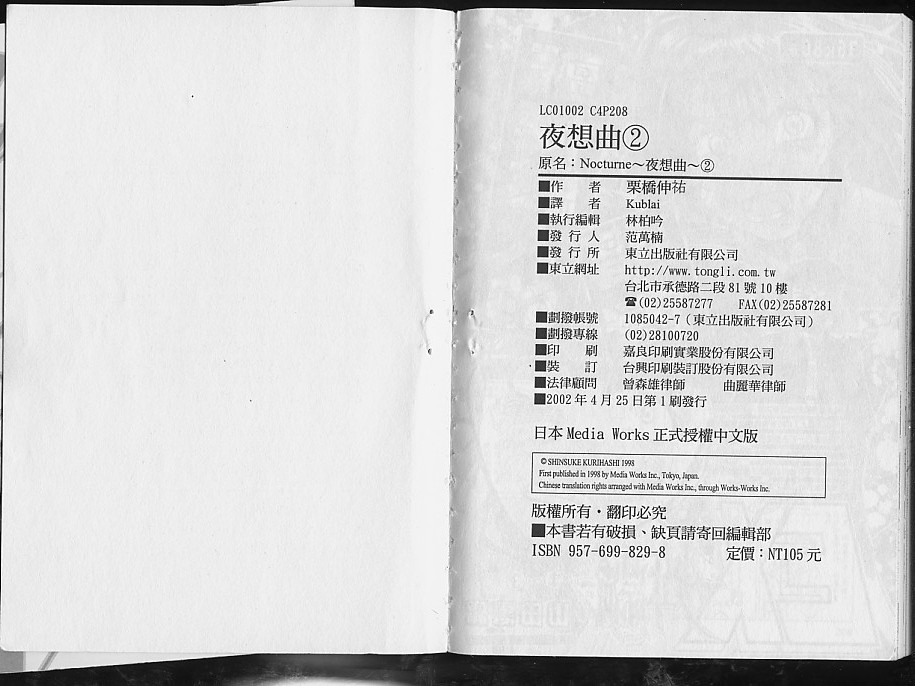 LC01002 C4P208
夜想曲②
原名：Nocturne～夜想曲～②
■作　者　栗橋伸祐
■譯　者　Kublai
■執行編輯　林柏吟
■發 行 人　范萬楠
■發 行 所　東立出版社有限公司
■東立網址　http://www.tongli.com.tw
台北市承德路二段81號10樓
☎(02)25587277　FAX(02)25587281
■劃撥帳號　1085042-7（東立出版社有限公司）
■劃撥專線　(02)28100720
■印　刷　嘉良印刷實業股份有限公司
■裝　訂　台興印刷裝訂股份有限公司
■法律顧問　曾森雄律師　曲麗華律師
■2002年4月25日第1刷發行
日本Media Works正式授權中文版
© SHINSUKE KURIHASHI 1998
First published in 1998 by Media Works Inc., Tokyo, Japan.
Chinese translation rights arranged with Media Works Inc., through Works-Works Inc.
版權所有・翻印必究
■本書若有破損、缺頁請寄回編輯部
ISBN 957-699-829-8　定價：NT105元